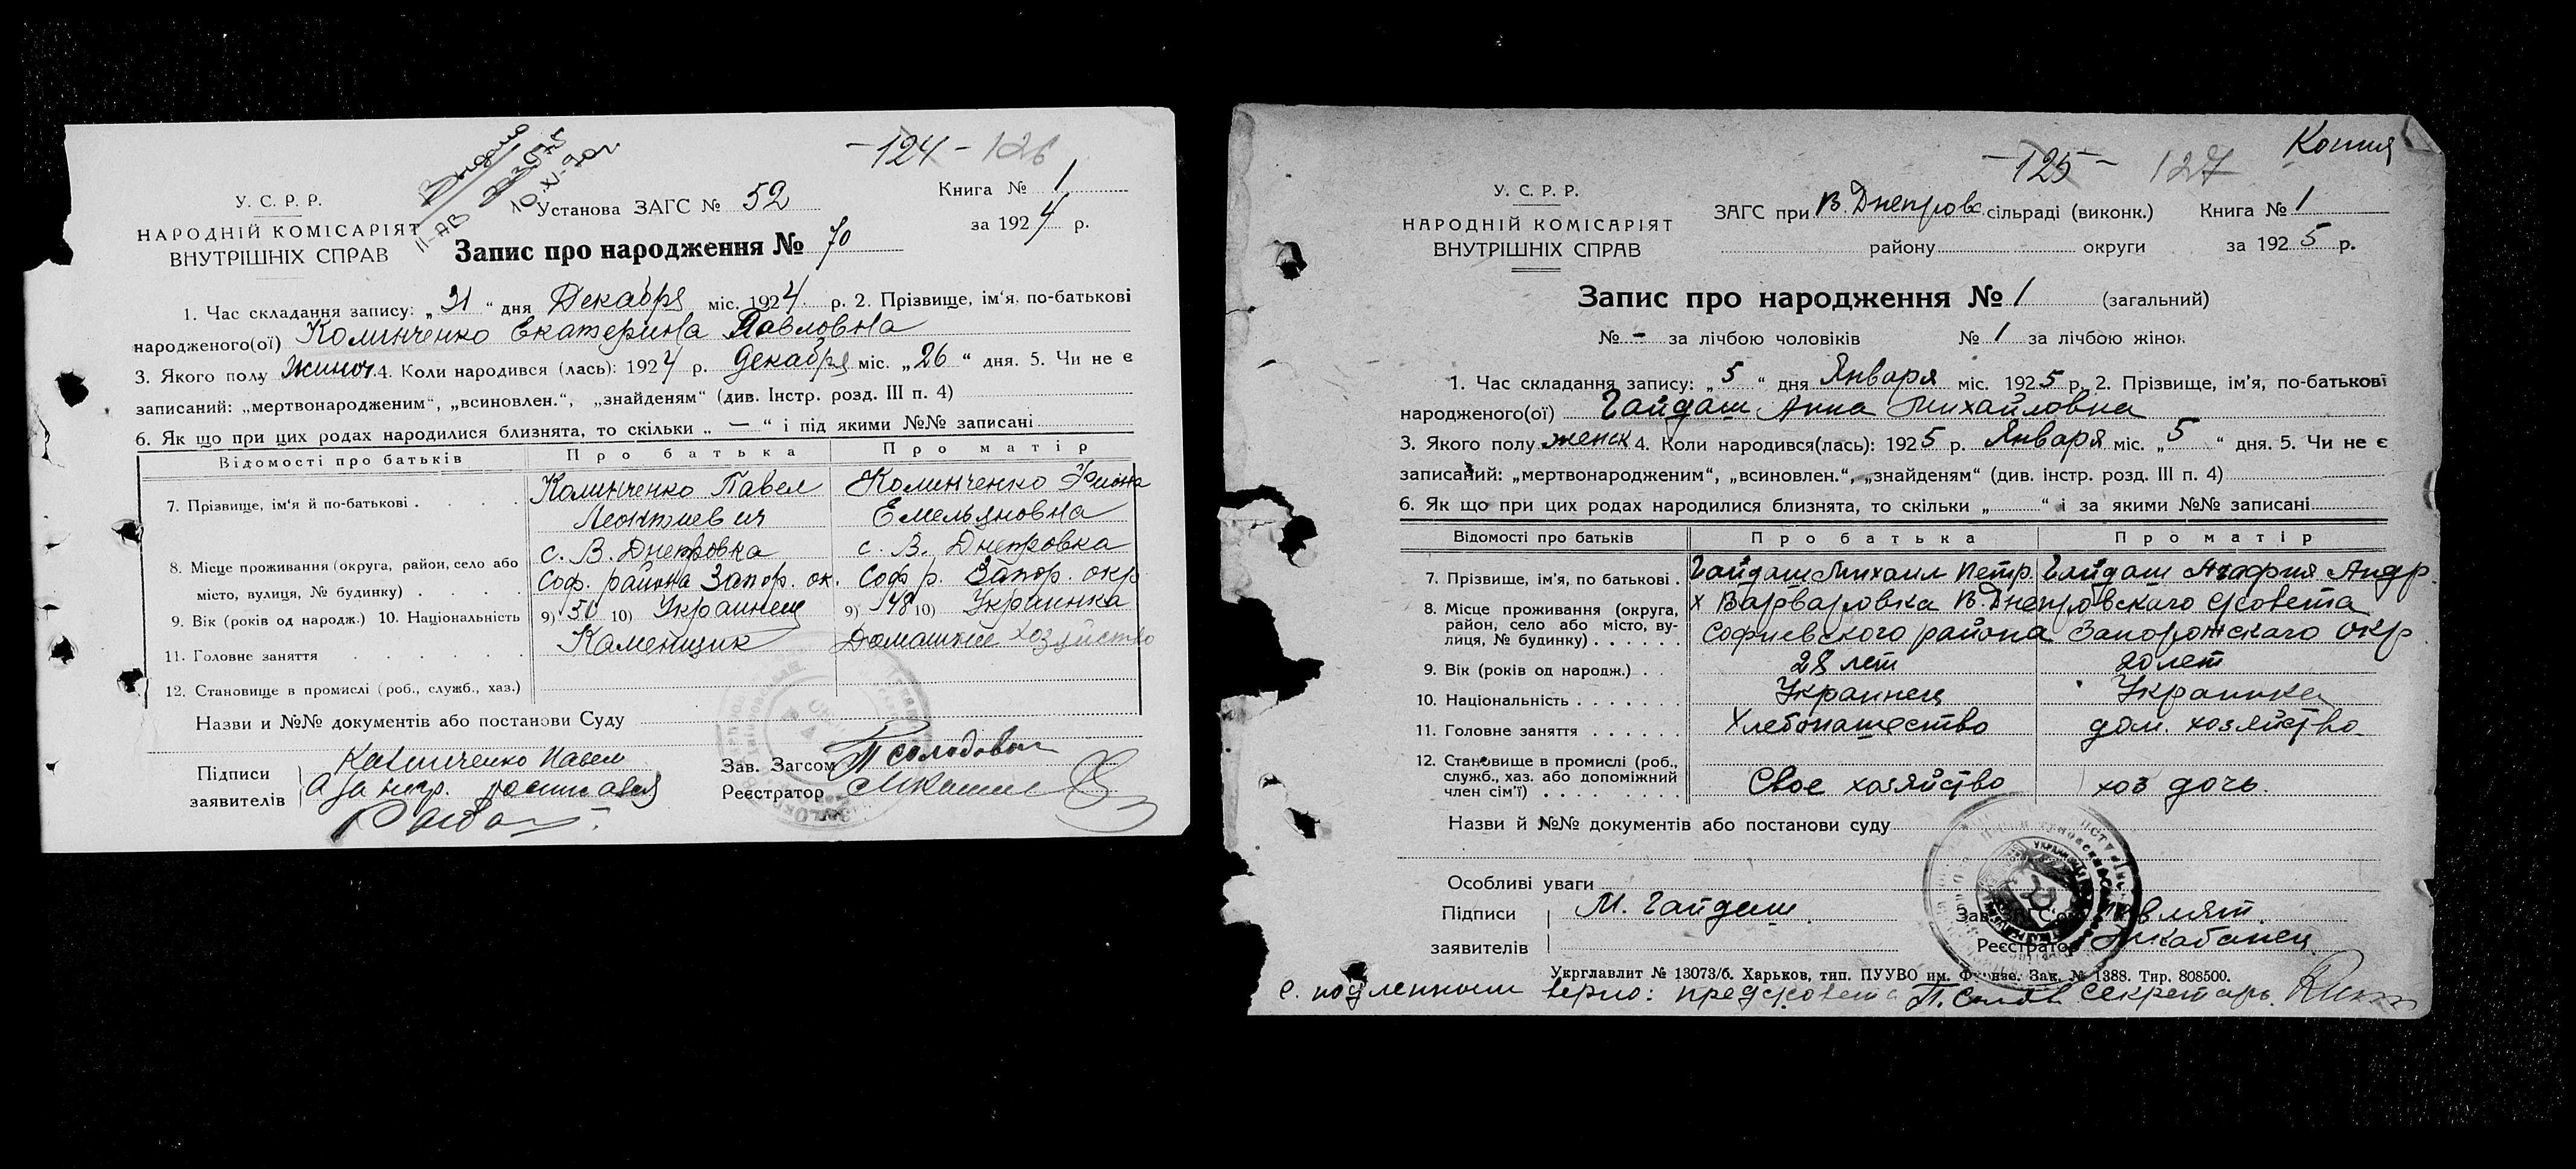 Выдано
10.XI-70г.
II-АВ
-124- 126
У. С. Р. Р.
НАРОДНІЙ КОМІСАРІЯТ
ВНУТРІШНІХ СПРАВ
Установа ЗАГС № 52
Книга № 1
за 1924 р.
Запис про народження № 70
1. Час складання запису: „31“ дня Декабря міс. 1924 р. 2. Прізвище, ім'я, по-батькові
народженого(ої) Колинченко Екатерина Павловна
3. Якого полу жиноч. 4. Коли народився (лась): 1924 р. Декабря міс. „26“ дня. 5. Чи не є
записаний: „мертвонародженим“, „всиновлен.“, „знайденям“ (див. Інстр. розд. III п. 4)
6. Як що при цих родах народилися близнята, то скільки „ — “ і під якими №№ записані
Відомості про батьків Про батька Про матір
7. Прізвище, ім'я й по-батькові . Колинченко Павел Леонтиевич Колинченко Емельяновна
8. Місце проживання (округа, район, село або
місто, вулиця, № будинку) с. В. Днепровка Соф. района Запор. ок. с. В. Днепровка Соф р. Запор. окр
9. Вік (років од народж.) 10. Національність 9) 50 10) Украинец 9) 48 10) Украинка
11. Головне заняття Каменщик Домашнее хозяйство
12. Становище в промислі (роб., служб., хаз.)
Назви и №№ документів або постанови Суду
Підписи
заявителів
Калинченко Павел
а за негр. росписався
Зав. Загсом П Солодовн
Реєстратор
Копия
-125- 127
У. С. Р. Р.
НАРОДНІЙ КОМІСАРІЯТ
ВНУТРІШНІХ СПРАВ
ЗАГС при В. Днепровс. сільраді (виконк.) Книга № 1
району округи за 1925 р.
Запис про народження № 1 (загальний)
№ - за лічбою чоловіків № 1 за лічбою жінок
1. Час складання запису: „5“ дня Января міс. 1925 р. 2. Прізвище, ім'я, по-батькові
народженого(ої) Гайдаш Анна Михайловна
3. Якого полу женск 4. Коли народився(лась): 1925 р. Января міс. „5“ дня. 5. Чи не є
записаний: „мертвонародженим“, „всиновлен.“, „знайденям“ (див. інстр. розд. III п. 4)
6. Як що при цих родах народилися близнята, то скільки „ “ і за якими №№ записані
Відомості про батьків Про батька Про матір
7. Прізвище, ім'я, по батькові . Гайдаш Михаил Петр. Гайдаш Агафия Андр.
8. Місце проживання (округа,
район, село або місто, ву-
лиця, № будинку)
х Варваровка В. Днепровскаго с/совета
Софиевского района Запорожскаго окр
9. Вік (років од народж.) . . 28 лет 20 лет
10. Національність Украинец Украинка
11. Головне заняття Хлебопашество дом. хозяйство
12. Становище в промислі (роб.,
служб., хаз. або допоміжний
член сім'ї) Свое хозяйство хоз дочь.
Назви й №№ документів або постанови суду
Особливі уваги
Підписи
заявителів
М. Гайдаш.
Зав. ЗАГС'ом
Реєстратор Кабанец
Укрглавлит № 13073/6. Харьков, тип. ПУУВО им. Фрунзе. Зак. № 1388. Тир. 808500.
С. подленным верно: предсовета П. Секретарь